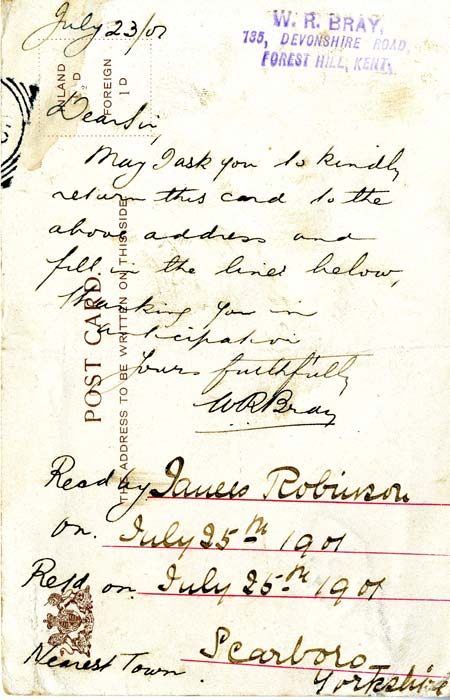 July 23/01
W. R. BRAY,
135, DEVONSHIRE ROAD,
FOREST HILL, KENT.
INLAND
½D
FOREIGN
1D
Dear Sir,
May I ask you to kindly
return this card to the
above address and
fill in the lines below,
thanking you in
anticipation
Yours faithfully
WRBray
POST CARD.
THE ADDRESS TO BE WRITTEN ON THIS SIDE
Recd by James Robinson
on. July 25th 1901
Retd on. July 25th 1901
Nearest Town. Scarboro
Yorkshire